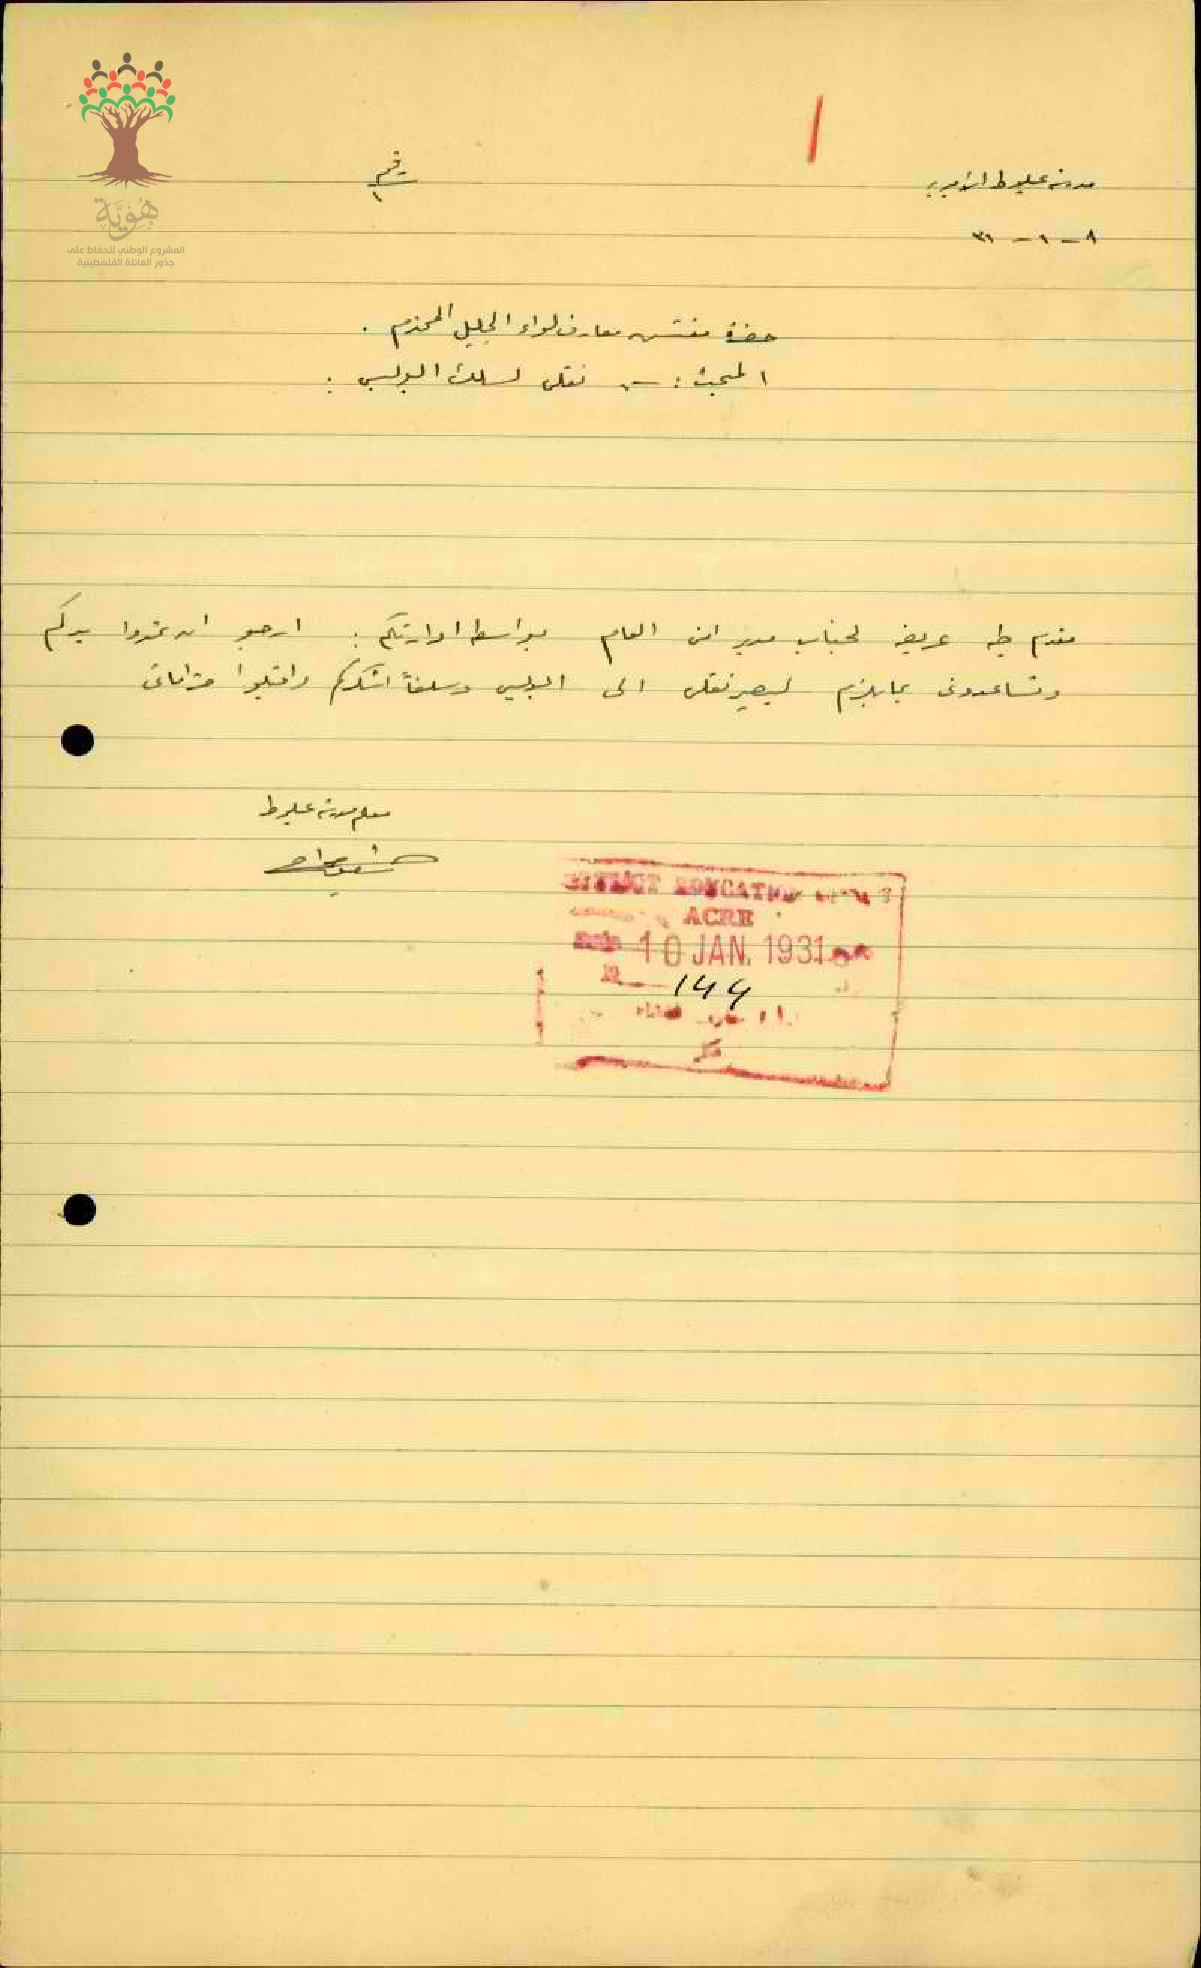 هُوِيَّة
المشروع الوطني للحفاظ على
جذور العائلة الفلسطينية
رقم
١
مدرسة عيلوط الأميرية
٨ - ١ - ٣١
حضرة مفتش معارف لواء الجليل المحترم .
المبحث :- نقلي لسلك البوليس :
مقدم طيه عريضة لجناب مدير امن العام بواسطة ادارتكم : ارجو ان تمدوا يدكم
وتساعدوني بما يلزم ليصير نقلي الى البوليس وسلفاً اشكركم واقبلوا احتراماتي
معلم مدرسة عيلوط
DISTRICT EDUCATION
ACRE
10 JAN. 1931
No 144
عكا